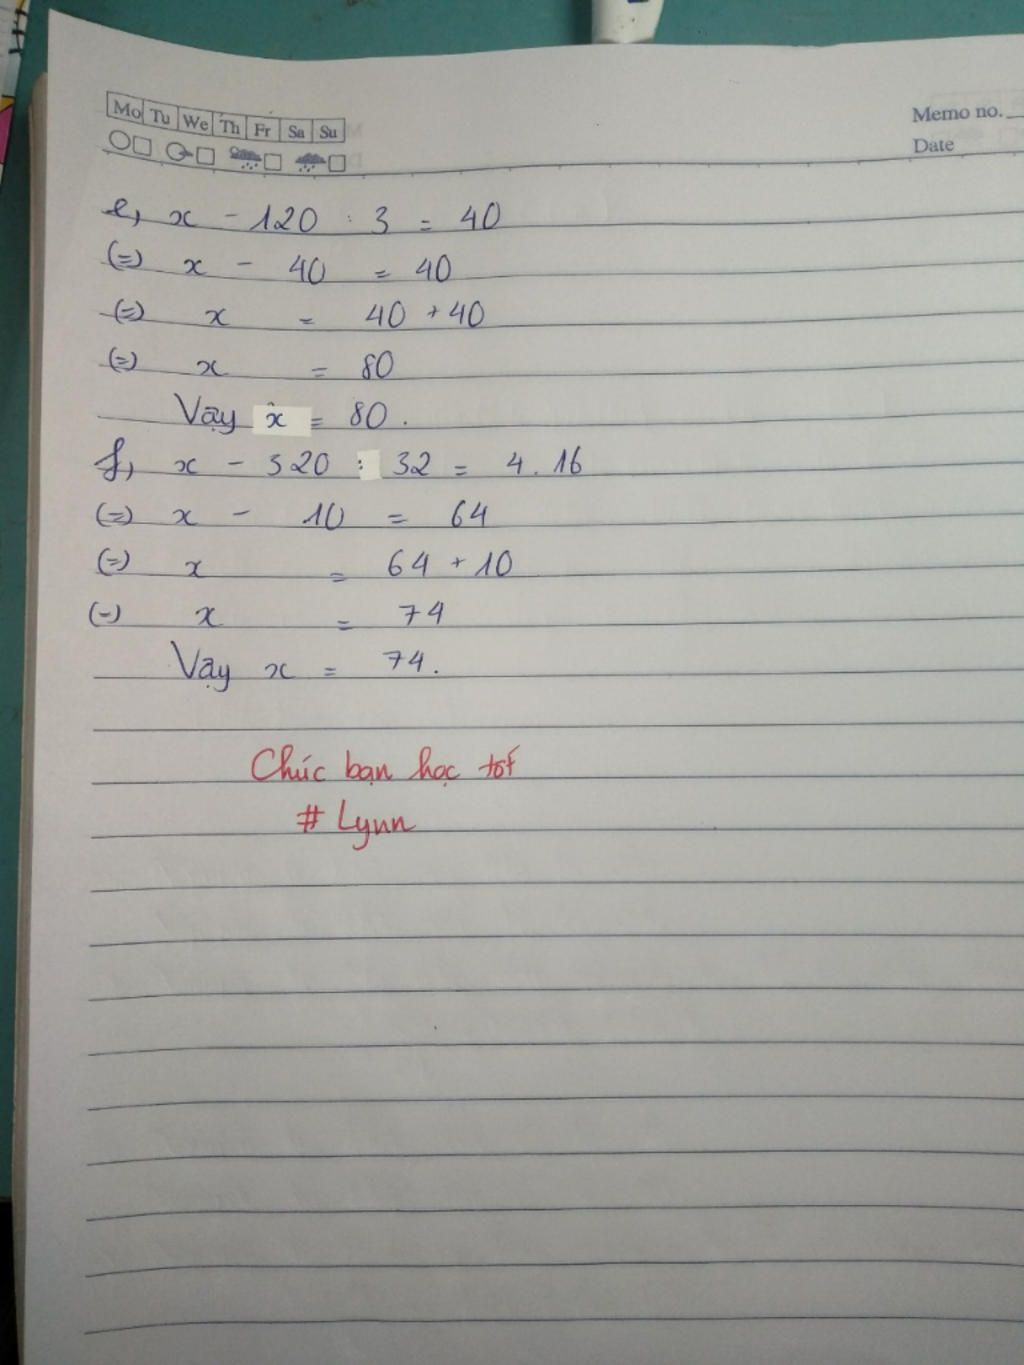 Mo Tu We Th Fr Sa Su
Memo no.
Date
e, x - 120 : 3 = 40
(=) x - 40 = 40
(=) x = 40 + 40
(=) x = 80
Vậy x = 80.
f, x - 320 : 32 = 4 . 16
(=) x - 10 = 64
(=) x = 64 + 10
(=) x = 74
Vậy x = 74.
Chúc bạn học tốt
# Lynn